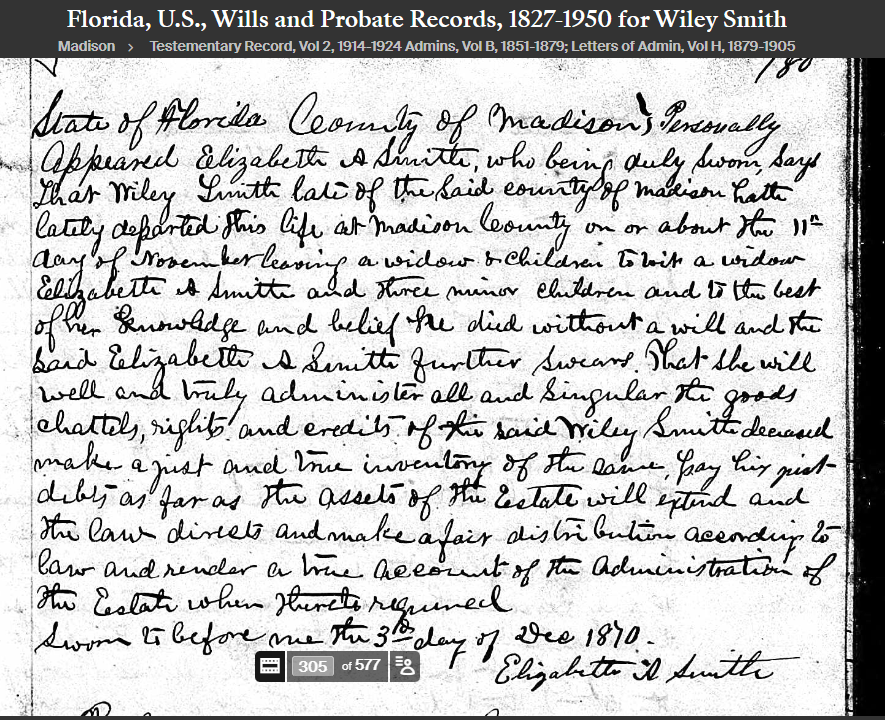 Florida, U.S., Wills and Probate Records, 1827-1950 for Wiley Smith
Madison > Testementary Record, Vol 2, 1914-1924 Admins, Vol B, 1851-1879; Letters of Admin, Vol H, 1879-1905
State of Florida County of Madison} Personally
Appeared Elizabeth A Smith, who being duly sworn, says
That Wiley Smith late of the said county of Madison hath
lately departed this life at Madison County on or about the 11th
day of November leaving a widow & children to wit a widow
Elizabeth A Smith and three minor children and to the best
of her knowledge and belief he died without a will and the
said Elizabeth A Smith further swears. That she will
well and truly administer all and singular the goods
chattels, rights and credits of the said Wiley Smith deceased
make a just and true inventory of the same, pay his just
debts as far as the assets of the Estate will extend and
the law directs and make a fair distribution according to
law and render a true account of the administration of
the Estate when thereto required
Sworn to before me the 3rd day of Dec 1870.
305 of 577
Elizabeth A Smith